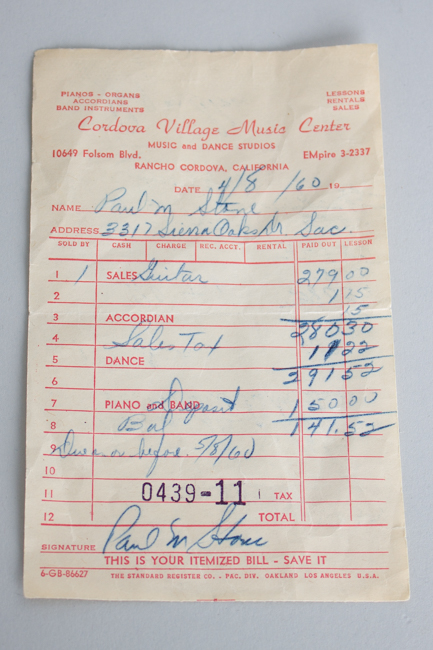 PIANOS - ORGANS
ACCORDIANS
BAND INSTRUMENTS
LESSONS
RENTALS
SALES
Cordova Village Music Center
MUSIC and DANCE STUDIOS
10649 Folsom Blvd. EMpire 3-2337
RANCHO CORDOVA, CALIFORNIA
DATE 4/8/60 19
NAME Paul M Stone
ADDRESS 3317 Sierra Oaks Dr Sac.
SOLD BY CASH CHARGE REC. ACCT. RENTAL PAID OUT LESSON
1 1 SALES Guitar 279 00
2 1 15
15
3 ACCORDIAN 280 30
4 Sales Tax 11 22
5 DANCE 291 52
6
7 PIANO and BAND Deposit 150 00
8 Bal 141.52
9 Due on or before 5/8/60
10
11 0439-11 TAX
12 TOTAL
SIGNATURE Paul M Stone
THIS IS YOUR ITEMIZED BILL - SAVE IT
6-GB-86627 THE STANDARD REGISTER CO. - PAC. DIV. OAKLAND LOS ANGELES U.S.A.